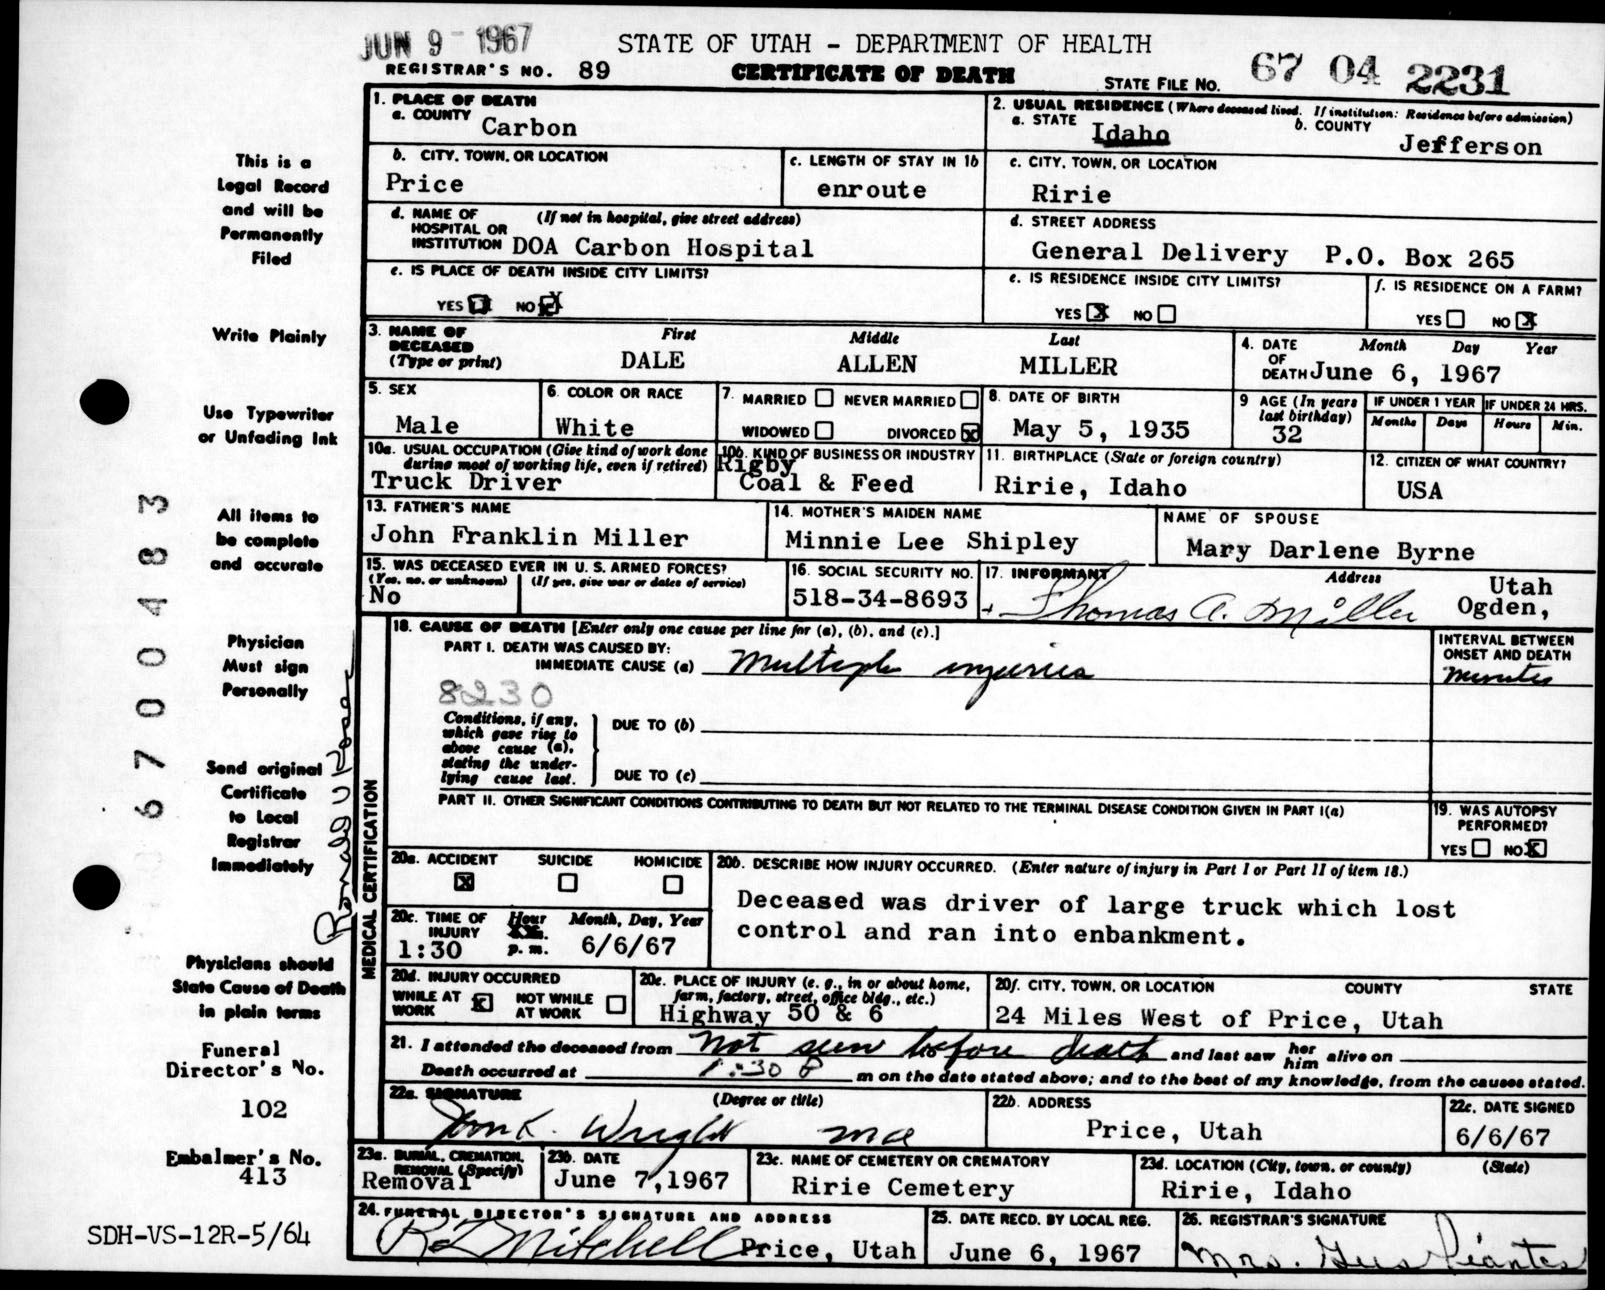 JUN 9 - 1967
STATE OF UTAH - DEPARTMENT OF HEALTH
REGISTRAR'S NO. 89
CERTIFICATE OF DEATH
STATE FILE NO. 67 04 2231
This is a
Legal Record
and will be
Permanently
Filed
Write Plainly
Use Typewriter
or Unfading Ink
All items to
be complete
and accurate
Physician
Must sign
Personally
Send original
Certificate
to Local
Registrar
Immediately
Physicians should
State Cause of Death
in plain terms
Funeral
Director's No.
102
Embalmer's No.
413
SDH-VS-12R-5/64
67 00483
Ronald U
MEDICAL CERTIFICATION
1. PLACE OF DEATH
a. COUNTY Carbon
2. USUAL RESIDENCE (Where deceased lived. If institution: Residence before admission)
a. STATE Idaho b. COUNTY Jefferson
b. CITY, TOWN, OR LOCATION
Price
c. LENGTH OF STAY IN 1b
enroute
c. CITY, TOWN, OR LOCATION
Ririe
d. NAME OF (If not in hospital, give street address)
HOSPITAL OR
INSTITUTION DOA Carbon Hospital
d. STREET ADDRESS
General Delivery P.O. Box 265
e. IS PLACE OF DEATH INSIDE CITY LIMITS?
YES NO X
e. IS RESIDENCE INSIDE CITY LIMITS?
YES X NO
f. IS RESIDENCE ON A FARM?
YES NO X
3. NAME OF First Middle Last
DECEASED
(Type or print) DALE ALLEN MILLER
4. DATE Month Day Year
OF
DEATH June 6, 1967
5. SEX
Male
6. COLOR OR RACE
White
7. MARRIED NEVER MARRIED
WIDOWED DIVORCED X
8. DATE OF BIRTH
May 5, 1935
9 AGE (In years
last birthday)
32
IF UNDER 1 YEAR IF UNDER 24 HRS.
Months Days Hours Min.
10a. USUAL OCCUPATION (Give kind of work done
during most of working life, even if retired)
Truck Driver
10b. KIND OF BUSINESS OR INDUSTRY
Rigby
Coal & Feed
11. BIRTHPLACE (State or foreign country)
Ririe, Idaho
12. CITIZEN OF WHAT COUNTRY?
USA
13. FATHER'S NAME
John Franklin Miller
14. MOTHER'S MAIDEN NAME
Minnie Lee Shipley
NAME OF SPOUSE
Mary Darlene Byrne
15. WAS DECEASED EVER IN U. S. ARMED FORCES?
(Yes, no, or unknown) (If yes, give war or dates of service)
No
16. SOCIAL SECURITY NO.
518-34-8693
17. INFORMANT Address
Thomas A. Miller Utah
Ogden,
18. CAUSE OF DEATH [Enter only one cause per line for (a), (b), and (c).]
PART I. DEATH WAS CAUSED BY:
IMMEDIATE CAUSE (a) Multiple injuries
INTERVAL BETWEEN
ONSET AND DEATH
Minutes
8230
Conditions, if any,
which gave rise to
above cause (a),
stating the under-
lying cause last.
DUE TO (b)
DUE TO (c)
PART II. OTHER SIGNIFICANT CONDITIONS CONTRIBUTING TO DEATH BUT NOT RELATED TO THE TERMINAL DISEASE CONDITION GIVEN IN PART I(a)
19. WAS AUTOPSY
PERFORMED?
YES NO X
20a. ACCIDENT SUICIDE HOMICIDE
X
20b. DESCRIBE HOW INJURY OCCURRED. (Enter nature of injury in Part I or Part II of item 18.)
Deceased was driver of large truck which lost
control and ran into enbankment.
20c. TIME OF Hour Month, Day, Year
INJURY a.m.
1:30 p.m. 6/6/67
20d. INJURY OCCURRED
WHILE AT WORK X NOT WHILE AT WORK
20e. PLACE OF INJURY (e. g., in or about home,
farm, factory, street, office bldg., etc.)
Highway 50 & 6
20f. CITY, TOWN, OR LOCATION COUNTY STATE
24 Miles West of Price, Utah
21. I attended the deceased from Not seen before death and last saw her him alive on
Death occurred at 1:30 P m on the date stated above; and to the best of my knowledge, from the causes stated.
22a. SIGNATURE (Degree or title)
Wright MD
22b. ADDRESS
Price, Utah
22c. DATE SIGNED
6/6/67
23a. BURIAL, CREMATION,
REMOVAL (Specify)
Removal
23b. DATE
June 7, 1967
23c. NAME OF CEMETERY OR CREMATORY
Ririe Cemetery
23d. LOCATION (City, town, or county) (State)
Ririe, Idaho
24. FUNERAL DIRECTOR'S SIGNATURE AND ADDRESS
Mitchell Price, Utah
25. DATE RECD. BY LOCAL REG.
June 6, 1967
26. REGISTRAR'S SIGNATURE
Mrs. Gus